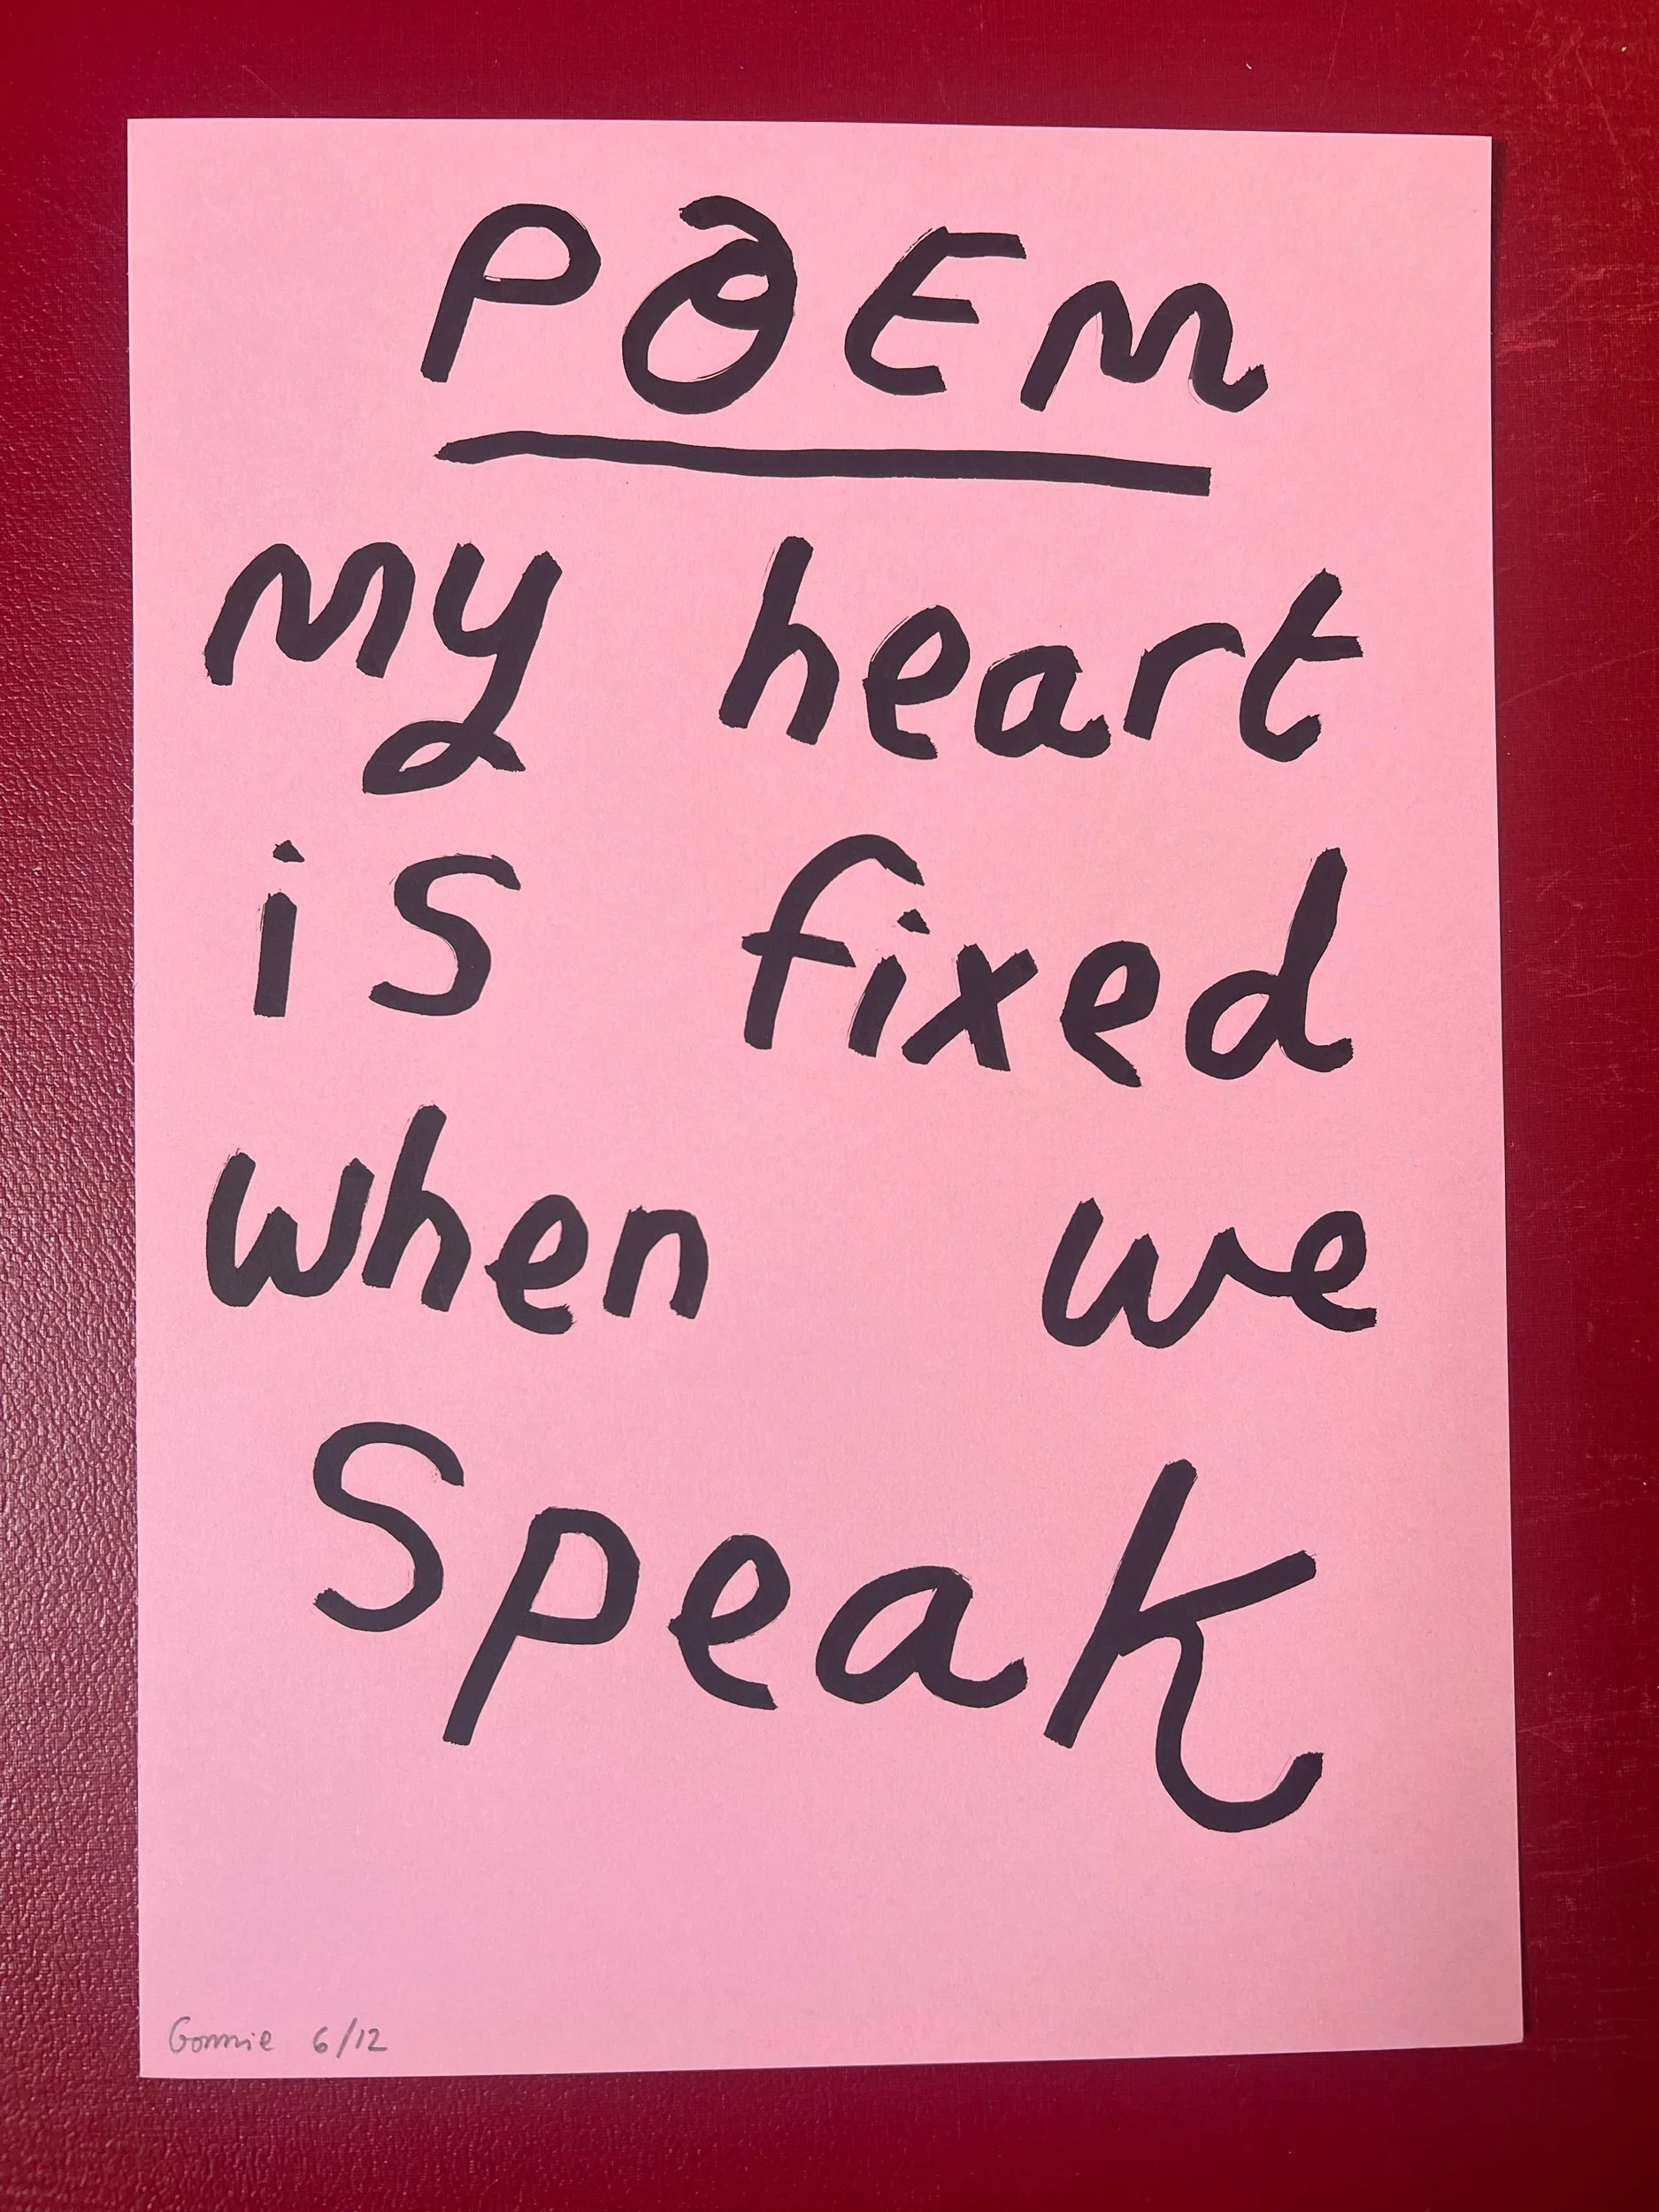 POEM
my heart
is fixed
when we
Speak
Gonnie 6/12